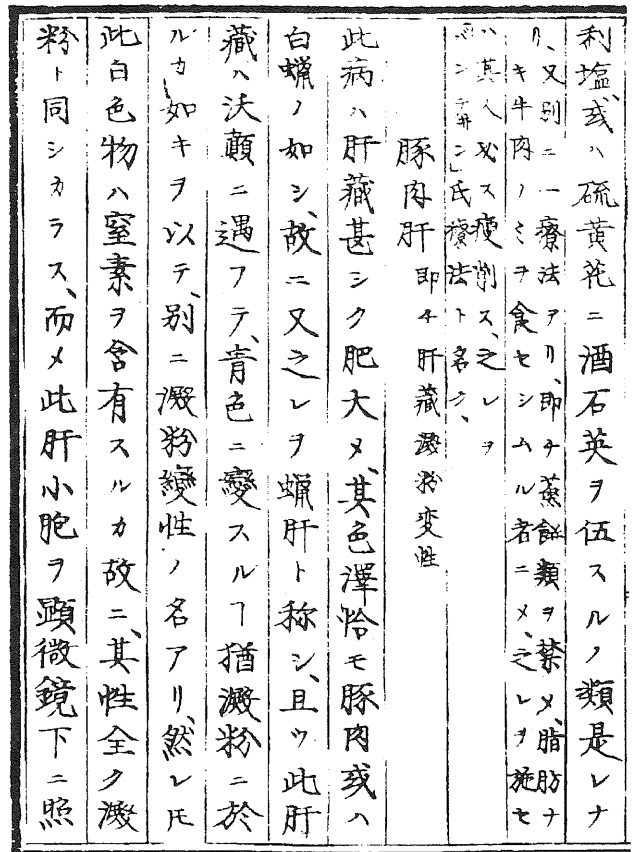 利塩、或ハ硫黄花ニ酒石英ヲ伍スルノ類是レナ
リ、又別ニ一療法アリ、即チ蒸餅類ヲ禁メ、脂肪ナ
キ牛肉ノミヲ食セシムル者ニメ、之レヲ施セ
ハ其人必ス瘦削ス、之レヲ
氏療法ト名ク、
豚肉肝 即チ肝藏澱粉変性
此病ハ肝藏甚シク肥大メ、其色澤恰モ豚肉或ハ
白蝋ノ如シ、故ニ又之レヲ蝋肝ト称シ、且ツ此肝
藏ハ沃顛ニ遇フテ、青色ニ變スルヿ猶澱粉ニ於
ルカ如キヲ以テ、別ニ澱粉變性ノ名アリ、然レ𪜈
此白色物ハ窒素ヲ含有スルカ故ニ、其性全ク澱
粉ト同シカラス、而メ此肝小胞ヲ顕微鏡下ニ照